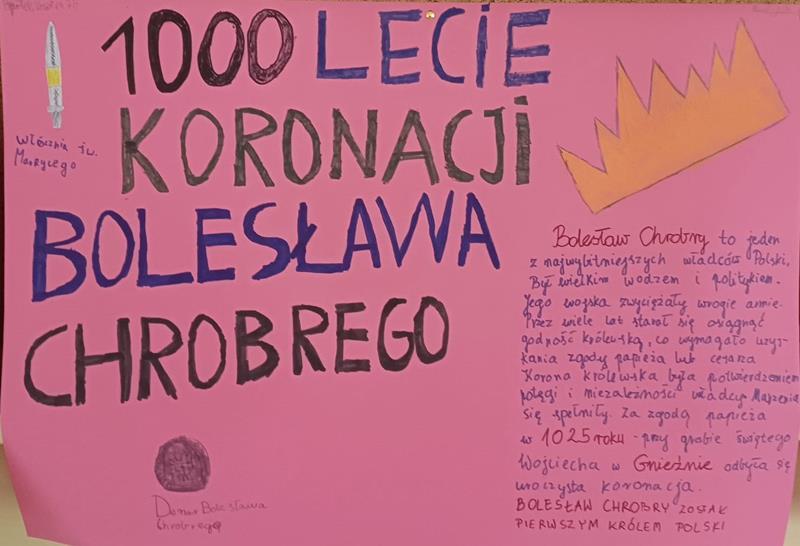 1000 LECIE
KORONACJI
BOLESŁAWA
CHROBREGO
Włócznia św.
Maurycego
Bolesław Chrobry to jeden
z najwybitniejszych władców Polski,
Był wielkim wodzem i politykiem.
Jego wojska zwyciężały wrogie armie.
Przez wiele lat starał się osiągnąć
godność królewską, co wymagało uzys-
kania zgody papieża lub cesarza
Korona królewska była potwierdzeniem
potęgi i niezależności władcy. Marzenia
się spełniły. Za zgodą papieża
w 1025 roku - przy grobie świętego
Wojciecha w Gnieźnie odbyła się
uroczysta koronacja.
BOLESŁAW CHROBRY ZOSTAŁ
PIERWSZYM KRÓLEM POLSKI
Denar Bolesława
Chrobrego